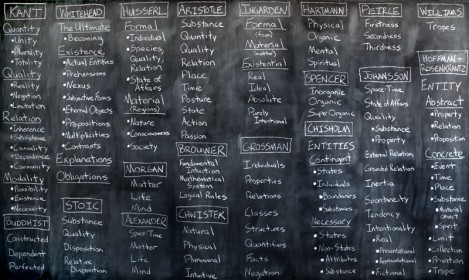 KANT
Quantity
•Unity
•Plurality
•Totality
Quality
•Reality
•Negation
•Limitation
Relation
•Inherence
•Subsistence
•Causality
•Dependence
•Community
Modality
•Possibility
•Existence
•Necessity
BUDDHIST
Constructed
Dependent
Perfect
WHITEHEAD
The Ultimate
•Becoming
Existence
•Actual Entities
•Prehensions
•Nexus
•Subjective Forms
•Eternal Objects
•Propositions
•Multiplicities
•Contrasts
Explanations
Obligations
STOIC
Substance
Quality
Disposition
Relative
Disposition
HUSSERL
Formal
•Individual
•Species,
Quality,
Relation
•State of
Affairs
Material
(Regions)
•Nature
•Consciousness
•Society
MORGAN
Matter
Life
Mind
ALEXANDER
Space-Time
Matter
Life
Mind
ARISTOTLE
Substance
Quantity
Quality
Relation
Place
Time
Posture
State
Action
Passion
BROUWER
Fundamental
Intuition
Mathematical
System
Logical Rules
CHWISTEK
Natural
Physical
Phenomenal
Intuitive
INGARDEN
Formal
Material
Existential
Real
Ideal
Absolute
Purely
Intentional
GROSSMAN
Individuals
Properties
Relations
Classes
Structures
Quantifiers
Facts
Negation
HARTMANN
Physical
Organic
Mental
Spiritual
SPENCER
Inorganic
Organic
SuperOrganic
CHISHOLM
ENTITIES
Contingent
•States
•Individuals
•Boundaries
•Substances
Necessary
•States
•Non-States
•Attributes
•Substance
PEIRCE
Firstness
Secondness
Thirdness
JOHANSSON
Space-Time
State of Affairs
Quality
•Substance
•Property
External Relation
Grounded Relation
Inertia
Spontaneity
Tendency
Intentionality
•Real
•Presentational
•Representational
•Fictional
WILLIAMS
Tropes
HOFFMAN+
ROSENKRANTZ
ENTITY
Abstract
•Property
•Relation
•Proposition
Concrete
•Event
•Time
•Place
•Substance
•Material
Object
•Spirit
•Limit
•Collection
•Privation
•Trope